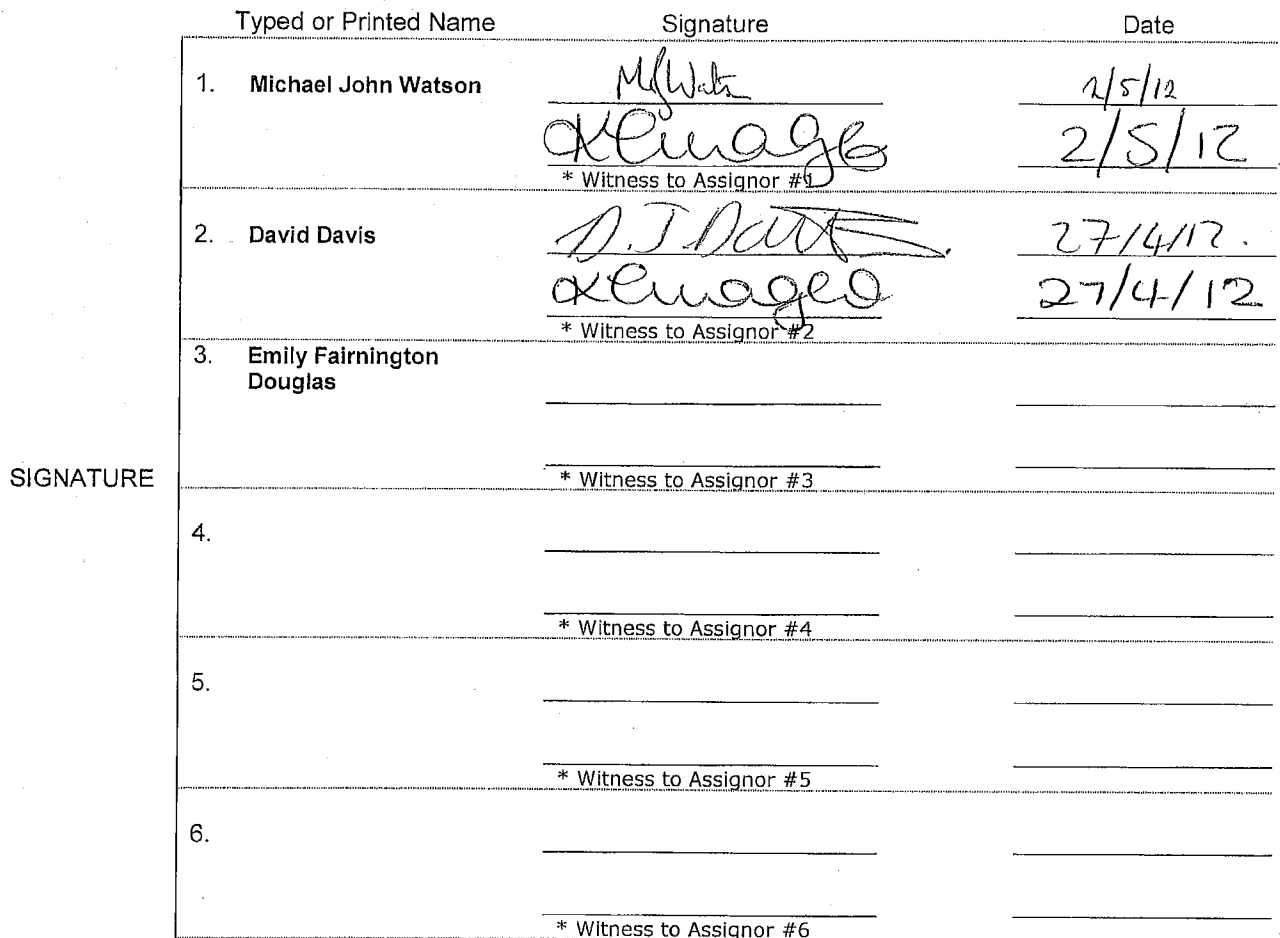 Typed or Printed Name Signature Date
1. Michael John Watson MJWats 2/5/12
2/5/12
* Witness to Assignor #1
2. David Davis D.J. Davis. 27/4/12.
27/4/12
* Witness to Assignor #2
3. Emily Fairnington
Douglas
SIGNATURE
* Witness to Assignor #3
4.
* Witness to Assignor #4
5.
* Witness to Assignor #5
6.
* Witness to Assignor #6